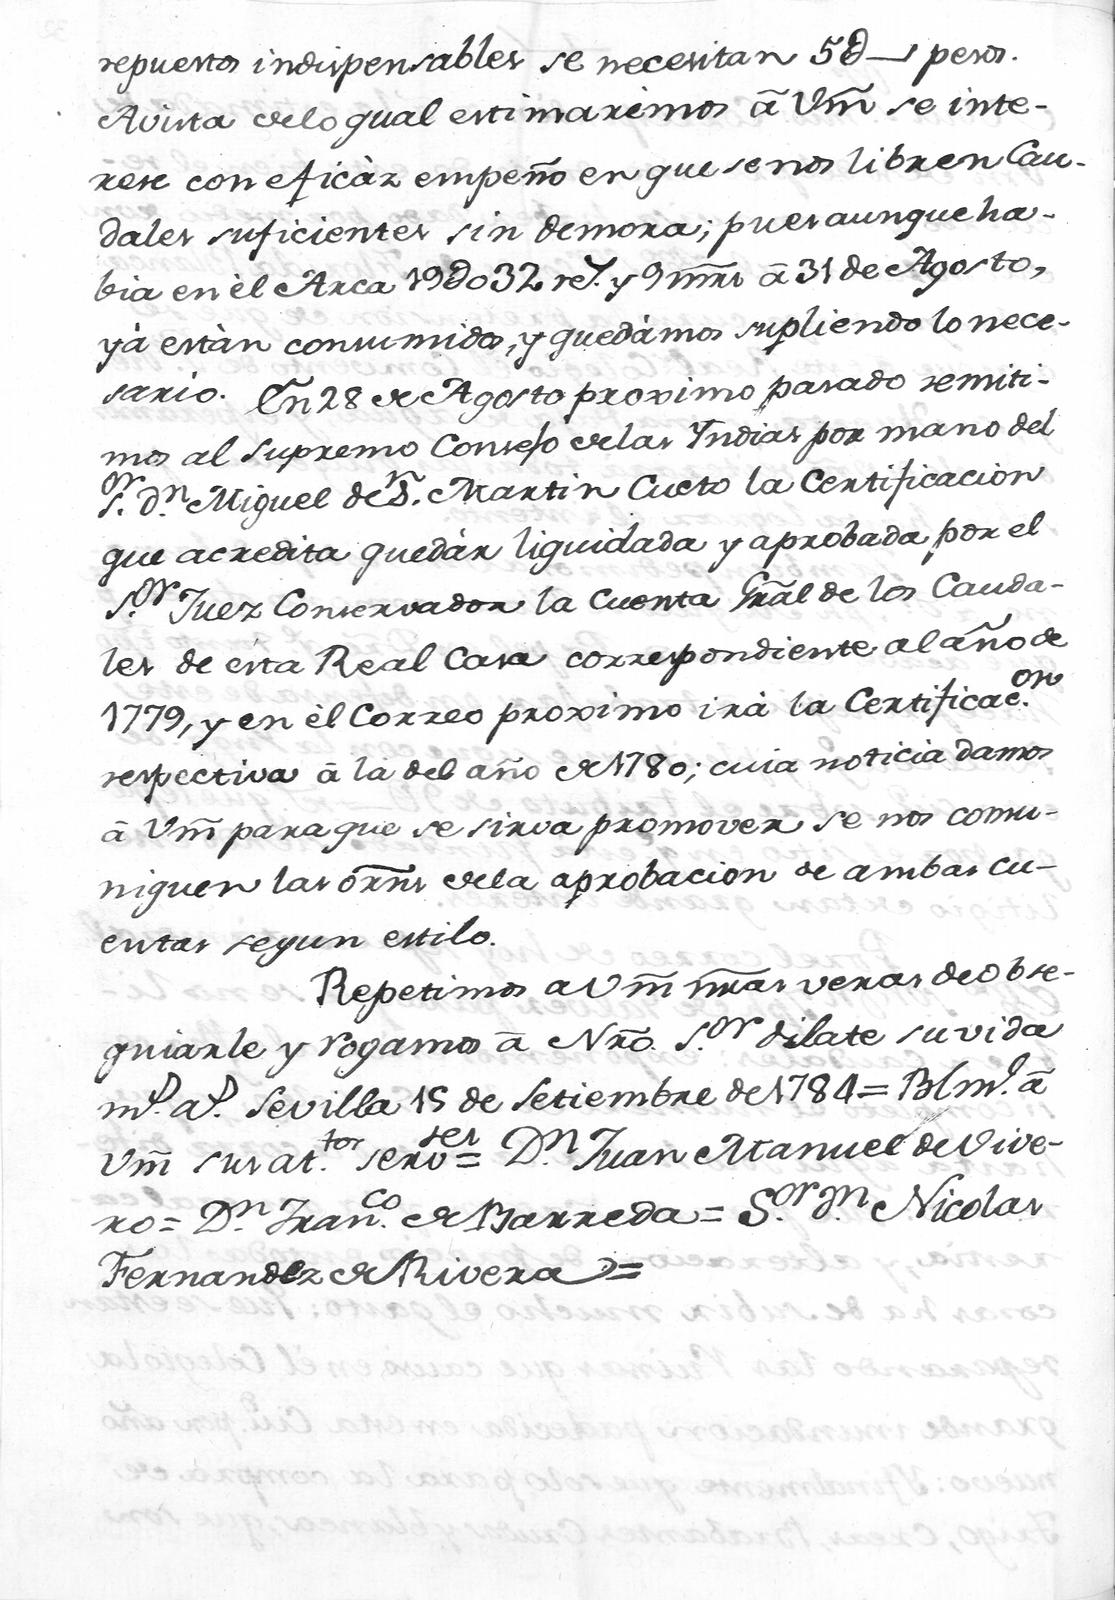 repuestos indispensables se necesitan 5∂— pesos.
Avista delo qual estimarémos ā Vm̃ se inte-
rese con eficàz empeño en que se nos libren Cau-
dales suficientes sin demora; pues aunque ha-
bia en èl Arca 19∂032 rs. y 9 mr̃s ā 31 de Agosto,
yà estàn consumidos, y quedámos supliendo lo nece-
sario. En 28 de Agosto proximo pasado remiti-
mos al supremo Consejo delas Yndias por mano del
S.or D.n Miguel de S.n Martin Cueto la Certificacion
que acredita quedár liquidada y aprobada por el
S.or Juez Conservador la Cuenta Gr̃al de los Cauda-
les de esta Real Casa correspondiente al año de
1779, y en èl Correo proximo irà la Certificac.on
respectiva ā la del año de 1780; cuia noticia damos
ā Vm̃ para que se sirva promover se nos comu-
niquen las ōrñs dela aprobacion de ambas cu-
entas segun estilo.
Repetimos a Vm̃ nr̃as veras de obse-
quiarle y rogamos ā Nrō. S.or dilate su vida
m.s a.s Sevilla 15 de Setiembre de 1784 = Blm.o ā
Vm̃ sus at.tos serv.res = D.n Juan Manuel de Vive-
ro = D.n Fran.co de Barreda = S.or D.n Nicolas
Fernandez de Rivera =